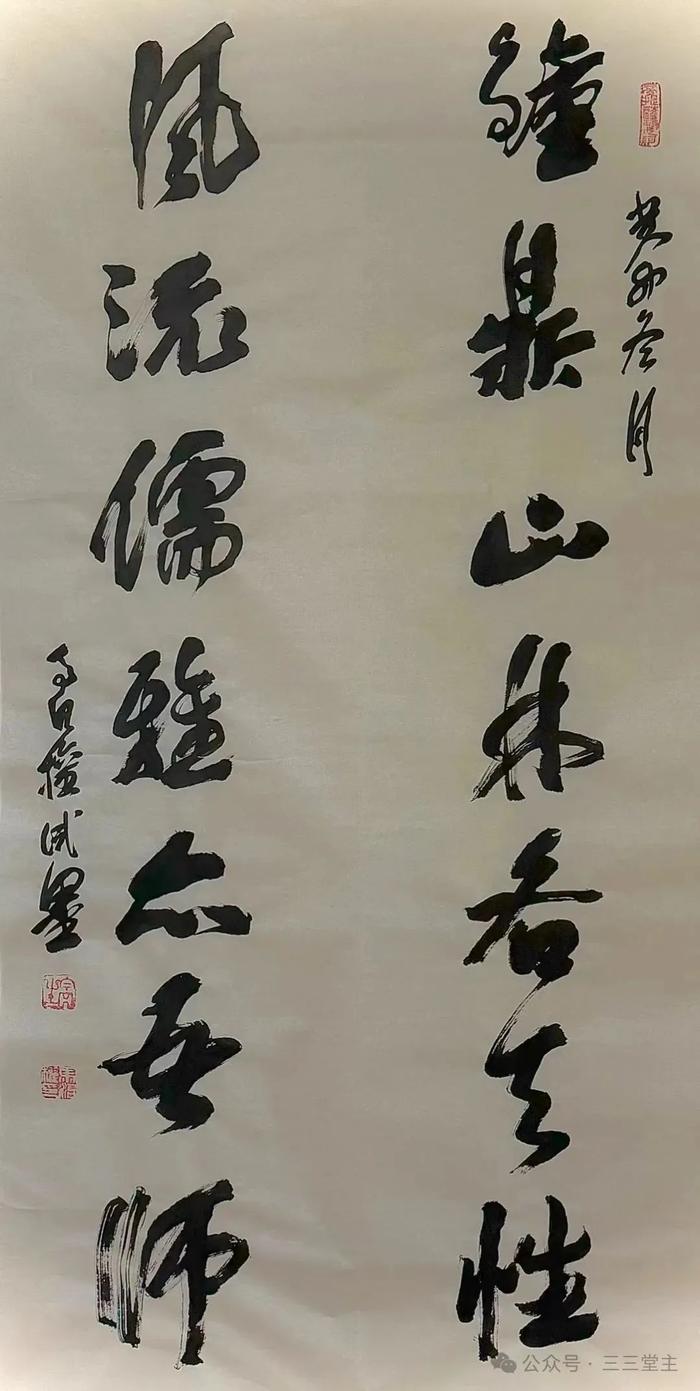 癸卯冬月
鐘鼎山林各天性
風流儒雅亦吾師
試墨
公众号·三三堂主